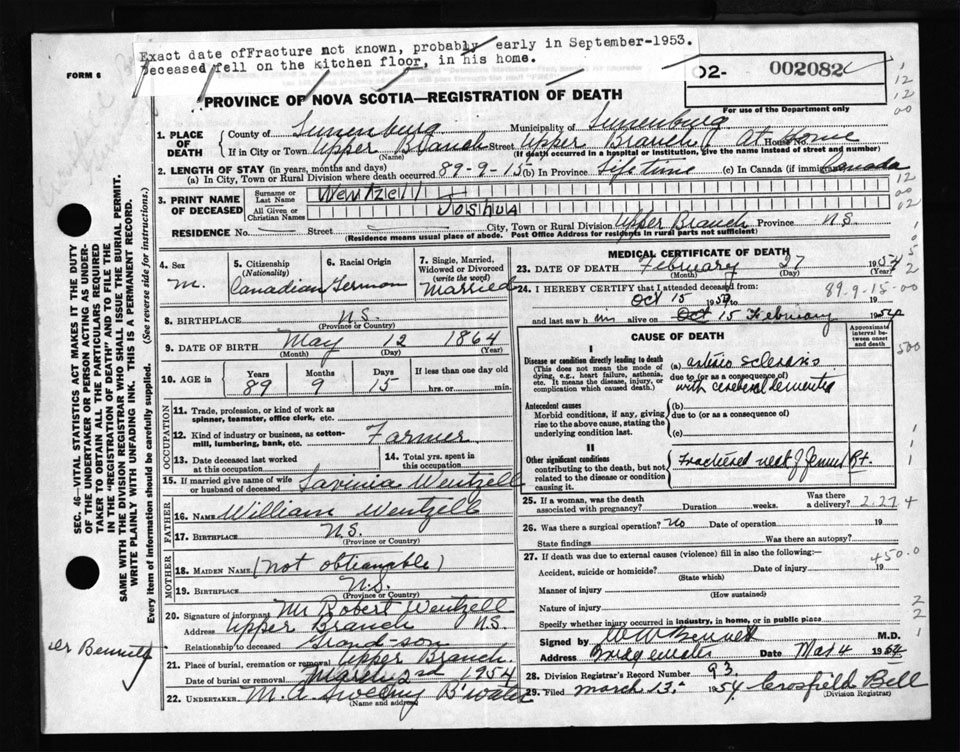 Exact date ofFracture not known, probably early in September-1953.
Deceased fell on the kitchen floor, in his home.
FORM 6
O2- 002082
For use of the Department only
PROVINCE OF NOVA SCOTIA—REGISTRATION OF DEATH
1. PLACE OF DEATH County of Lunenburg Municipality of Lunenburg
If in City or Town Upper Branch Street Upper Branch House No. At Home
(Name) (If death occurred in a hospital or institution, give the name instead of street and number)
2. LENGTH OF STAY (in years, months and days)
(a) In City, Town or Rural Division where death occurred 89-9-15 (b) In Province Life time (c) In Canada (if immigrant) Canada
3. PRINT NAME OF DECEASED Surname or Last Name Wentzell
All Given or Christian Names Joshua
RESIDENCE No. Street City, Town or Rural Division Upper Branch Province N.S.
(Residence means usual place of abode. Post Office Address for residents in rural parts not sufficient)
4. Sex M.
5. Citizenship (Nationality) Canadian
6. Racial Origin German
7. Single, Married, Widowed or Divorced (write the word) Married
8. BIRTHPLACE N.S.
(Province or Country)
9. DATE OF BIRTH May 12 1864
(Month) (Day) (Year)
10. AGE in Years 89 Months 9 Days 15 If less than one day old hrs. or min.
OCCUPATION
11. Trade, profession, or kind of work as spinner, teamster, office clerk, etc.
12. Kind of industry or business, as cotton-mill, lumbering, bank, etc. Farmer
13. Date deceased last worked at this occupation
14. Total yrs. spent in this occupation
15. If married give name of wife or husband of deceased Lavinia Wentzell
FATHER
16. NAME William Wentzell
17. BIRTHPLACE N.S.
(Province or Country)
MOTHER
18. MAIDEN NAME (not obtainable)
19. BIRTHPLACE N.S.
(Province or Country)
20. Signature of informant Mr Robert Wentzell
Address Upper Branch N.S.
Relationship to deceased Grand-son
21. Place of burial, cremation or removal Upper Branch.
Date of burial or removal March 1954
22. UNDERTAKER M. A. Sweeny B'water
(Name and address)
MEDICAL CERTIFICATE OF DEATH
23. DATE OF DEATH February 27 1954
(Month) (Day) (Year)
24. I HEREBY CERTIFY that I attended deceased from 89-9-15-00
Oct 15 to 19
and last saw him alive on Oct 15 February 1954
CAUSE OF DEATH
Approximate interval between onset and death
I
Disease or condition directly leading to death
(This does not mean the mode of dying, e.g., heart failure, asthenia, etc. It means the disease, injury, or complication which caused death.)
(a) arterio sclerosis
due to (or as a consequence of)
with cerebral dementia
Antecedent causes
Morbid conditions, if any, giving rise to the above cause, stating the underlying condition last.
(b)
due to (or as a consequence of)
(c)
II
Other significant conditions contributing to the death, but not related to the disease or condition causing it.
Fractured neck of femur Rt.
25. If a woman, was the death associated with pregnancy? Duration weeks. Was there a delivery? 2-27 4
26. Was there a surgical operation? No Date of operation 19
State findings Was there an autopsy?
27. If death was due to external causes (violence) fill in also the following: 450.0
Accident, suicide or homicide? Date of injury 19
(State which)
Manner of injury
(How sustained)
Nature of injury
Specify whether injury occurred in industry, in home, or in public place
Signed by W W Bennett M.D.
Address Bridgewater Date Mar 4 1954
28. Division Registrar's Record Number 93
29. Filed March 13. 1954 Crosfield Bell
(Division Registrar)
SEC. 46—VITAL STATISTICS ACT MAKES IT THE DUTY
OF THE UNDERTAKER OR PERSON ACTING AS UNDER-
TAKER TO OBTAIN ALL THE PARTICULARS REQUIRED
IN THE "REGISTRATION OF DEATH" AND TO FILE THE
SAME WITH THE DIVISION REGISTRAR WHO SHALL ISSUE THE BURIAL PERMIT.
WRITE PLAINLY WITH UNFADING INK. THIS IS A PERMANENT RECORD.
Every item of information should be carefully supplied. (See reverse side for instructions.)
er Bennett